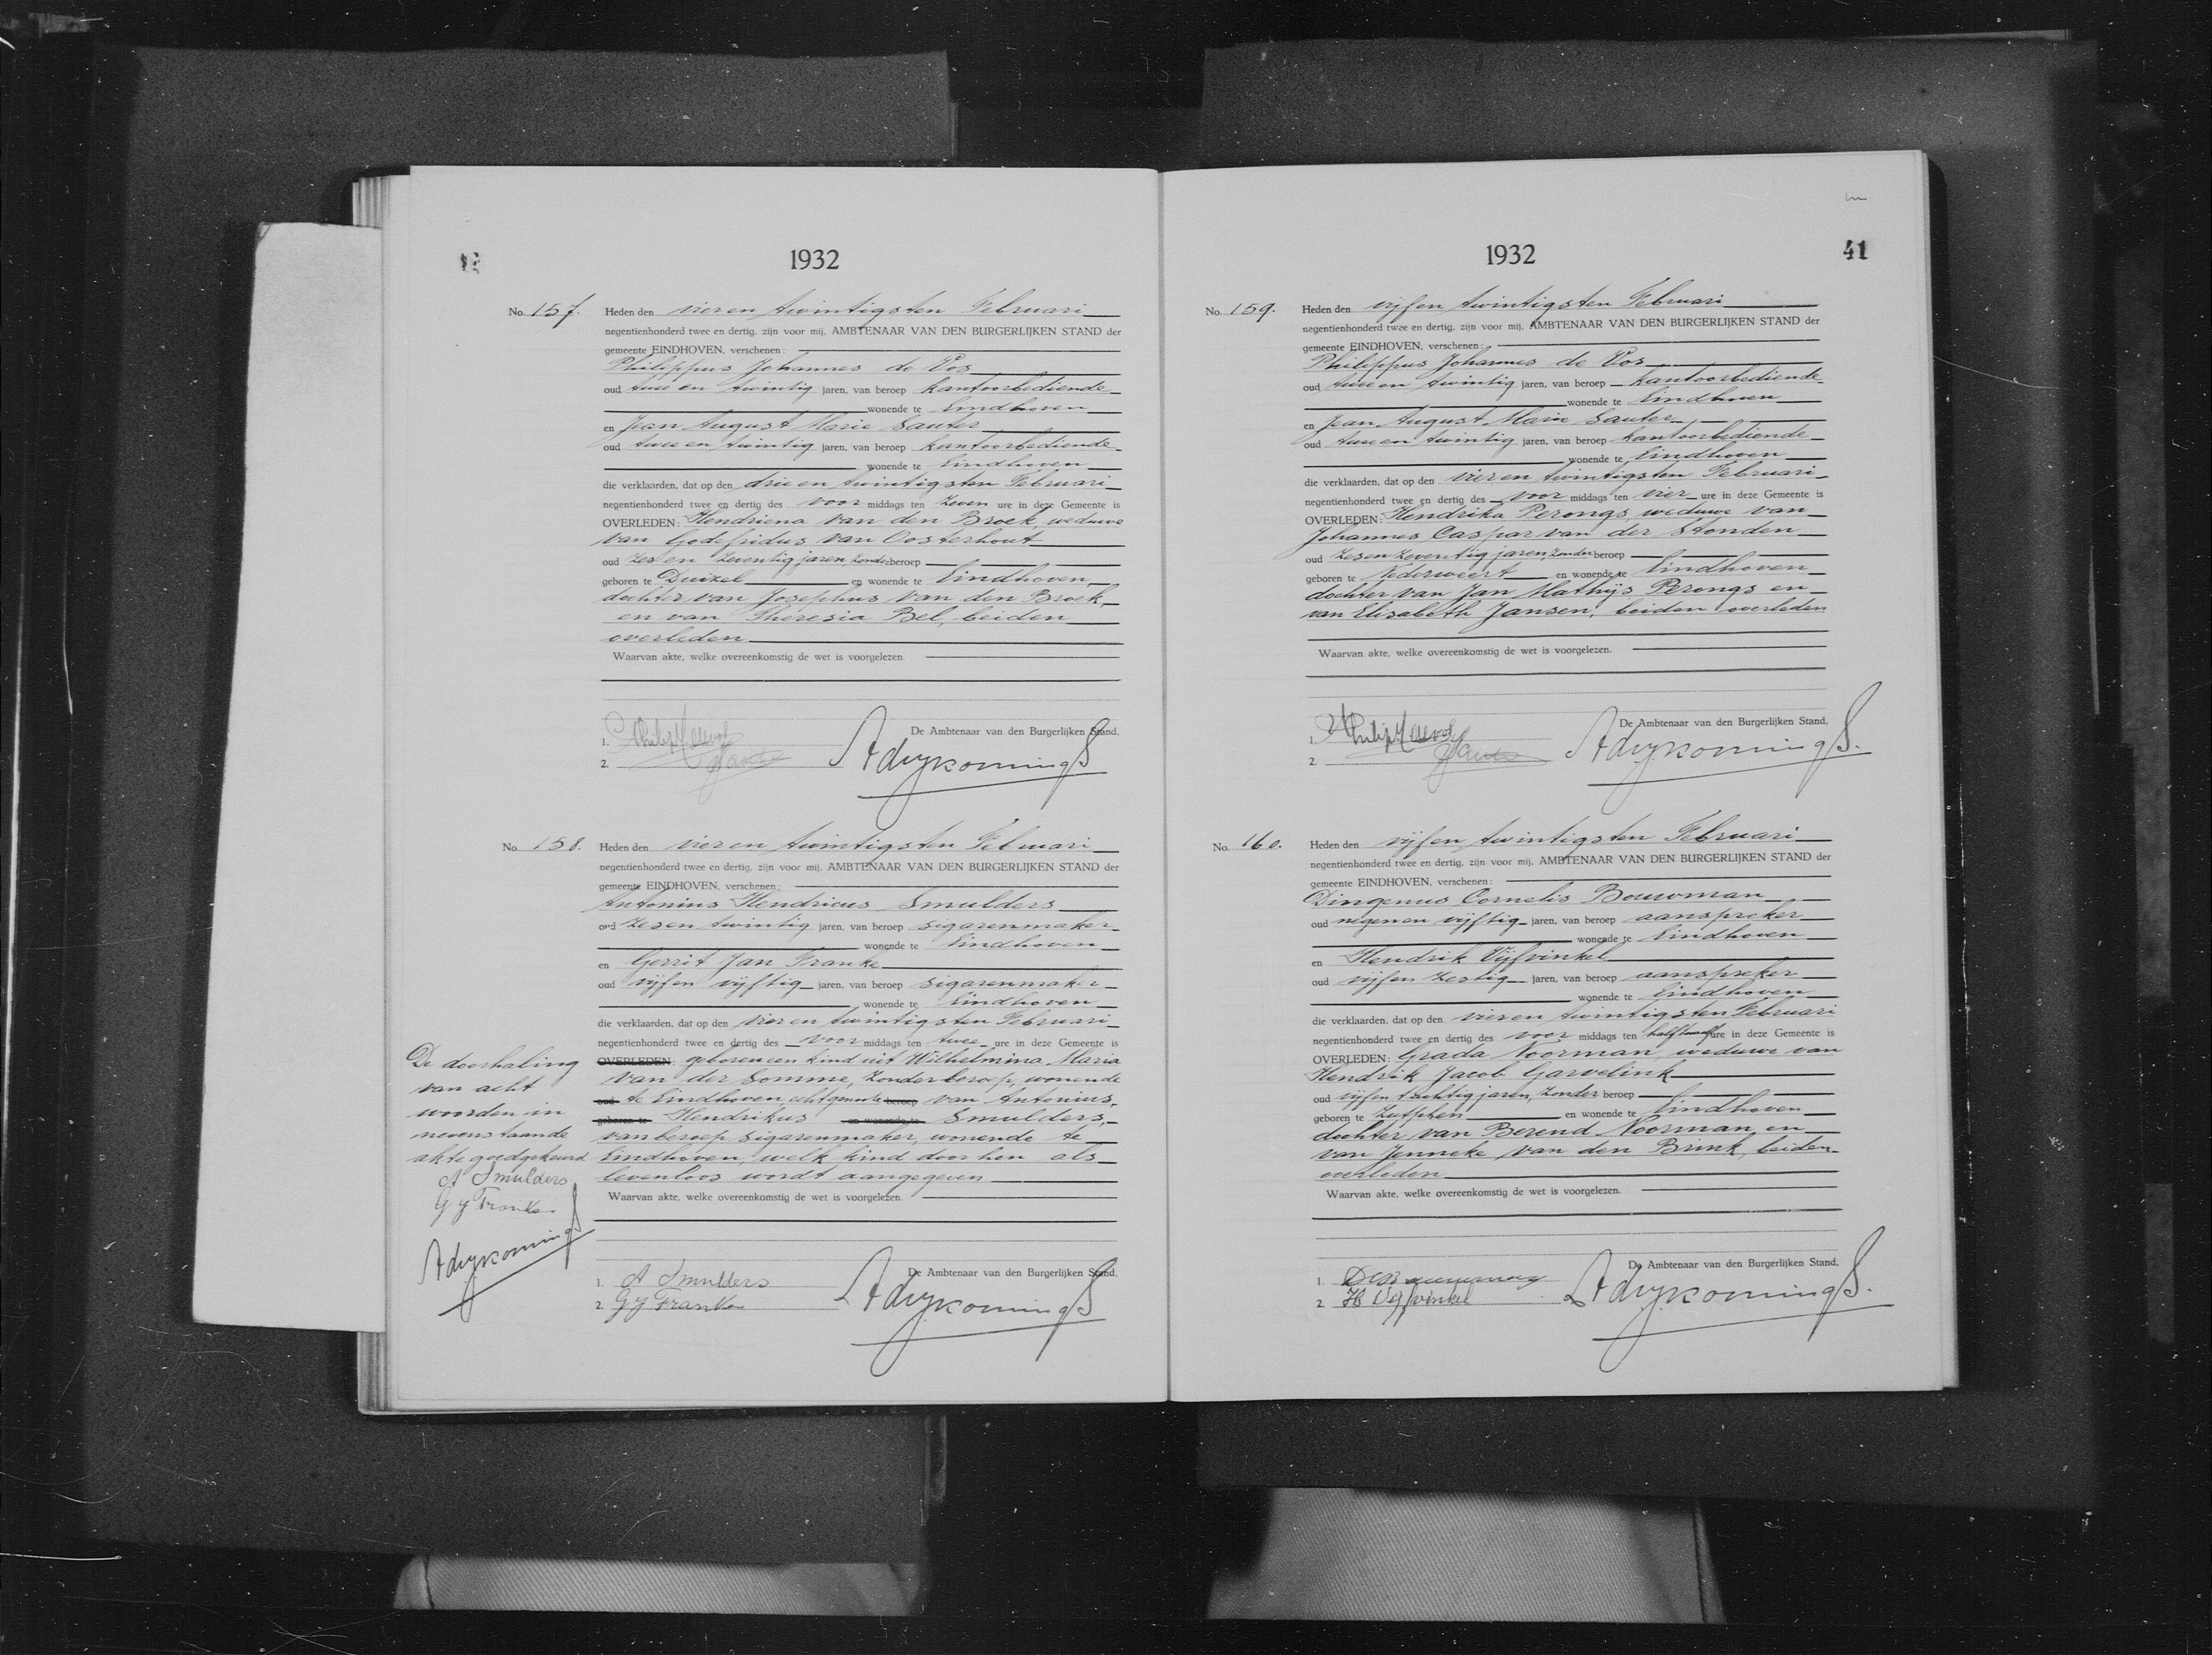 1932
No. 157. Heden den vier en twintigsten Februari
negentienhonderd twee en dertig, zijn voor mij, AMBTENAAR VAN DEN BURGERLIJKEN STAND der
gemeente EINDHOVEN, verschenen:
Philippus Johannes de Vos
oud twee en twintig jaren, van beroep kantoorbediende
wonende te Eindhoven
en Jean August Marie Sauter
oud twee en twintig jaren, van beroep kantoorbediende
wonende te Eindhoven
die verklaarden, dat op den drie en twintigsten Februari
negentienhonderd twee en dertig des voor middags ten zeven ure in deze Gemeente is
OVERLEDEN: Hendriena van den Broek, weduwe
van Godefridus van Oosterhout
oud zes en zeventig jaren, zonder beroep
geboren te Duizel en wonende te Eindhoven
dochter van Josephus van den Broek,
en van Theresia Bel, beiden
overleden
Waarvan akte, welke overeenkomstig de wet is voorgelezen.
De Ambtenaar van den Burgerlijken Stand,
1.
2.
No. 158. Heden den vier en twintigsten Februari
negentienhonderd twee en dertig, zijn voor mij, AMBTENAAR VAN DEN BURGERLIJKEN STAND der
gemeente EINDHOVEN, verschenen:
Antonius Hendricus Smulders
oud zesen twintig jaren, van beroep sigarenmaker
wonende te Eindhoven
en Gerrit Jan Franke
oud vijfen vijftig jaren, van beroep sigarenmaker
wonende te Eindhoven
die verklaarden, dat op den vier en twintigsten Februari
negentienhonderd twee en dertig des voor middags ten twee ure in deze Gemeente is
OVERLEDEN: geboren een kind uit Wilhelmina Maria
van der Somme, zonder beroep, wonende
oud te Eindhoven, echtgenoote beroep van Antonius
geboren te Hendrikus en wonende te Smulders,
van beroep sigarenmaker, wonende te
Eindhoven, welk kind door hen als
levenloos wordt aangegeven
Waarvan akte, welke overeenkomstig de wet is voorgelezen.
De Ambtenaar van den Burgerlijken Stand,
1. A Smulders
2. G J Franke
De doorhaling
van acht
woorden in
nevenstaande
akte goedgekeurd
A Smulders
G J Franke
1932
41
No. 159. Heden den vijfen twintigsten Februari
negentienhonderd twee en dertig, zijn voor mij, AMBTENAAR VAN DEN BURGERLIJKEN STAND der
gemeente EINDHOVEN, verschenen:
Philippus Johannes de Vos
oud twee en twintig jaren, van beroep kantoorbediende
wonende te Eindhoven
en Jean August Marie Sauter
oud twee en twintig jaren, van beroep kantoorbediende
wonende te Eindhoven
die verklaarden, dat op den vier en twintigsten Februari
negentienhonderd twee en dertig des voor middags ten vier ure in deze Gemeente is
OVERLEDEN: Hendrika Perongs, weduwe van
Johannes Caspar van der Stonden
oud zesen zeventig jaren, zonder beroep
geboren te Nederweert en wonende te Eindhoven
dochter van Jan Mathijs Perongs en
van Elisabeth Jansen, beiden overleden
Waarvan akte, welke overeenkomstig de wet is voorgelezen.
De Ambtenaar van den Burgerlijken Stand,
1.
2.
No. 160. Heden den vijfen twintigsten Februari
negentienhonderd twee en dertig, zijn voor mij, AMBTENAAR VAN DEN BURGERLIJKEN STAND der
gemeente EINDHOVEN, verschenen:
Dingenus Cornelis Bouwman
oud negenen vijftig jaren, van beroep aanspreker
wonende te Eindhoven
en Hendrik Vijfvinkel
oud vijfen zestig jaren, van beroep aanspreker
wonende te Eindhoven
die verklaarden, dat op den vieren twintigsten Februari
negentienhonderd twee en dertig des voor middags ten half twaalf ure in deze Gemeente is
OVERLEDEN: Grada Noorman, weduwe van
Hendrik Jacob Garvelink
oud vijfen tachtig jaren, zonder beroep
geboren te Zutphen en wonende te Eindhoven
dochter van Berend Noorman, en
van Jenneke van den Brink, beiden
overleden
Waarvan akte, welke overeenkomstig de wet is voorgelezen.
De Ambtenaar van den Burgerlijken Stand,
1.
2. H Vijfvinkel